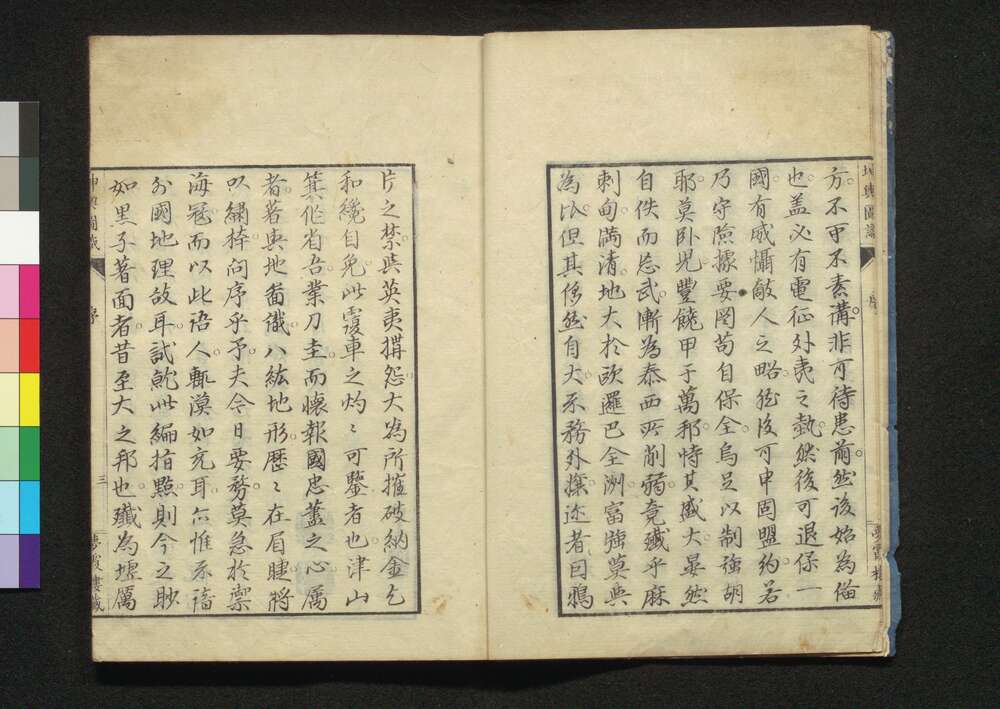 方不可不素講非可待患前然後始為備
也蓋必有電征外夷之執然後可退保一
國有威懾敵人之略然後可申固盟約若
乃守險據要罔苟自保全烏足以制強胡
耶莫臥児豐饒甲于萬邦恃其盛大晏然
自佚而忘武漸為泰西所削弱竟殲乎麻
剌甸満清地大於欧邏巴全洲富強莫與
為比但其侈然自大不務外攘迩者因鴉
片之禁與英夷搆怨大為所摧破納金乞
和纔自免此覆車之灼々可鑒者也津山
箕作省吾業刀圭而懐報國忠藎之心属
者著輿地啚識八紘地形歴々在眉睫将
以繍梓問序乎予夫今日要務莫急於禦
海冦而以此語人輒漠如充耳亦惟不諳
外國地理故耳試就此編指點則今之眇
如黒子著面者昔至大之邦也殲為墟属
序
三
夢霞樓藏